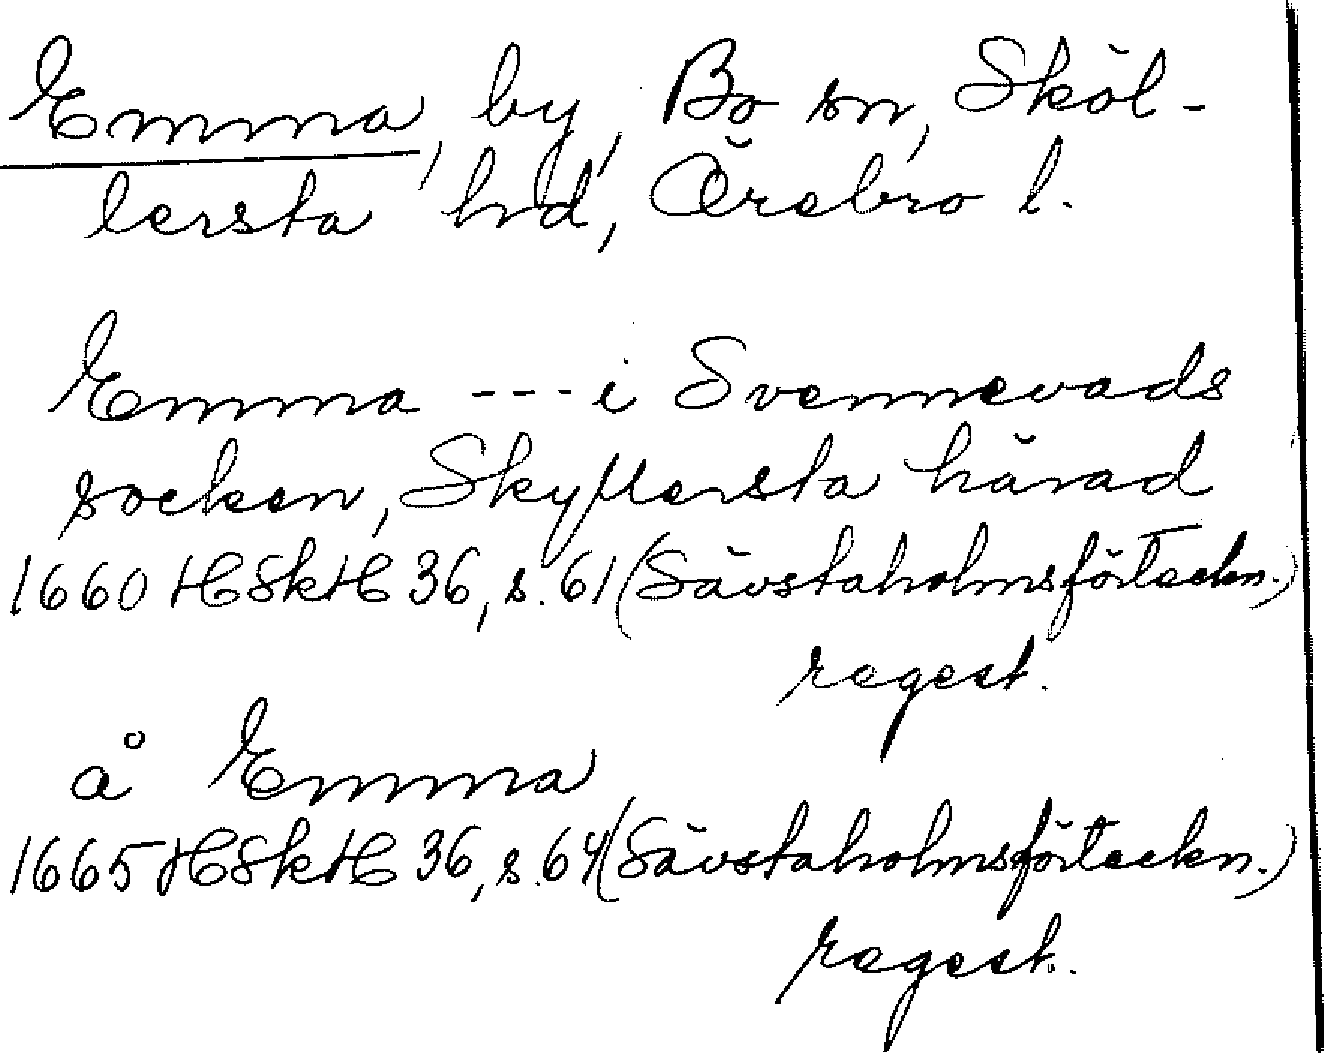 Emma, by, Bo sn, Sköl-
lersta hd, Örebro l.
Emma --- i Svennevads
socken, Skyllersta härad
1660 HSkH 36, s. 61 (Sävstaholmsförteckn.)
regest.
å Emma
1665 HSkH 36, s. 64 (Sävstaholmsförteckn.)
regest.